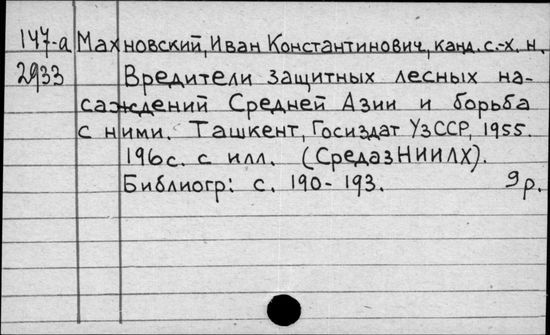 147-а Махновский, Иван Константинович, канд. с.-х. н.
2933 Вредители защитных лесных на-
саждений Средней Азии и борьба
с ними. Ташкент, Госиздат УзССР, 1955.
196 с. с илл. (СредазНИИЛХ).
Библиогр: с. 190-193. 9 р.